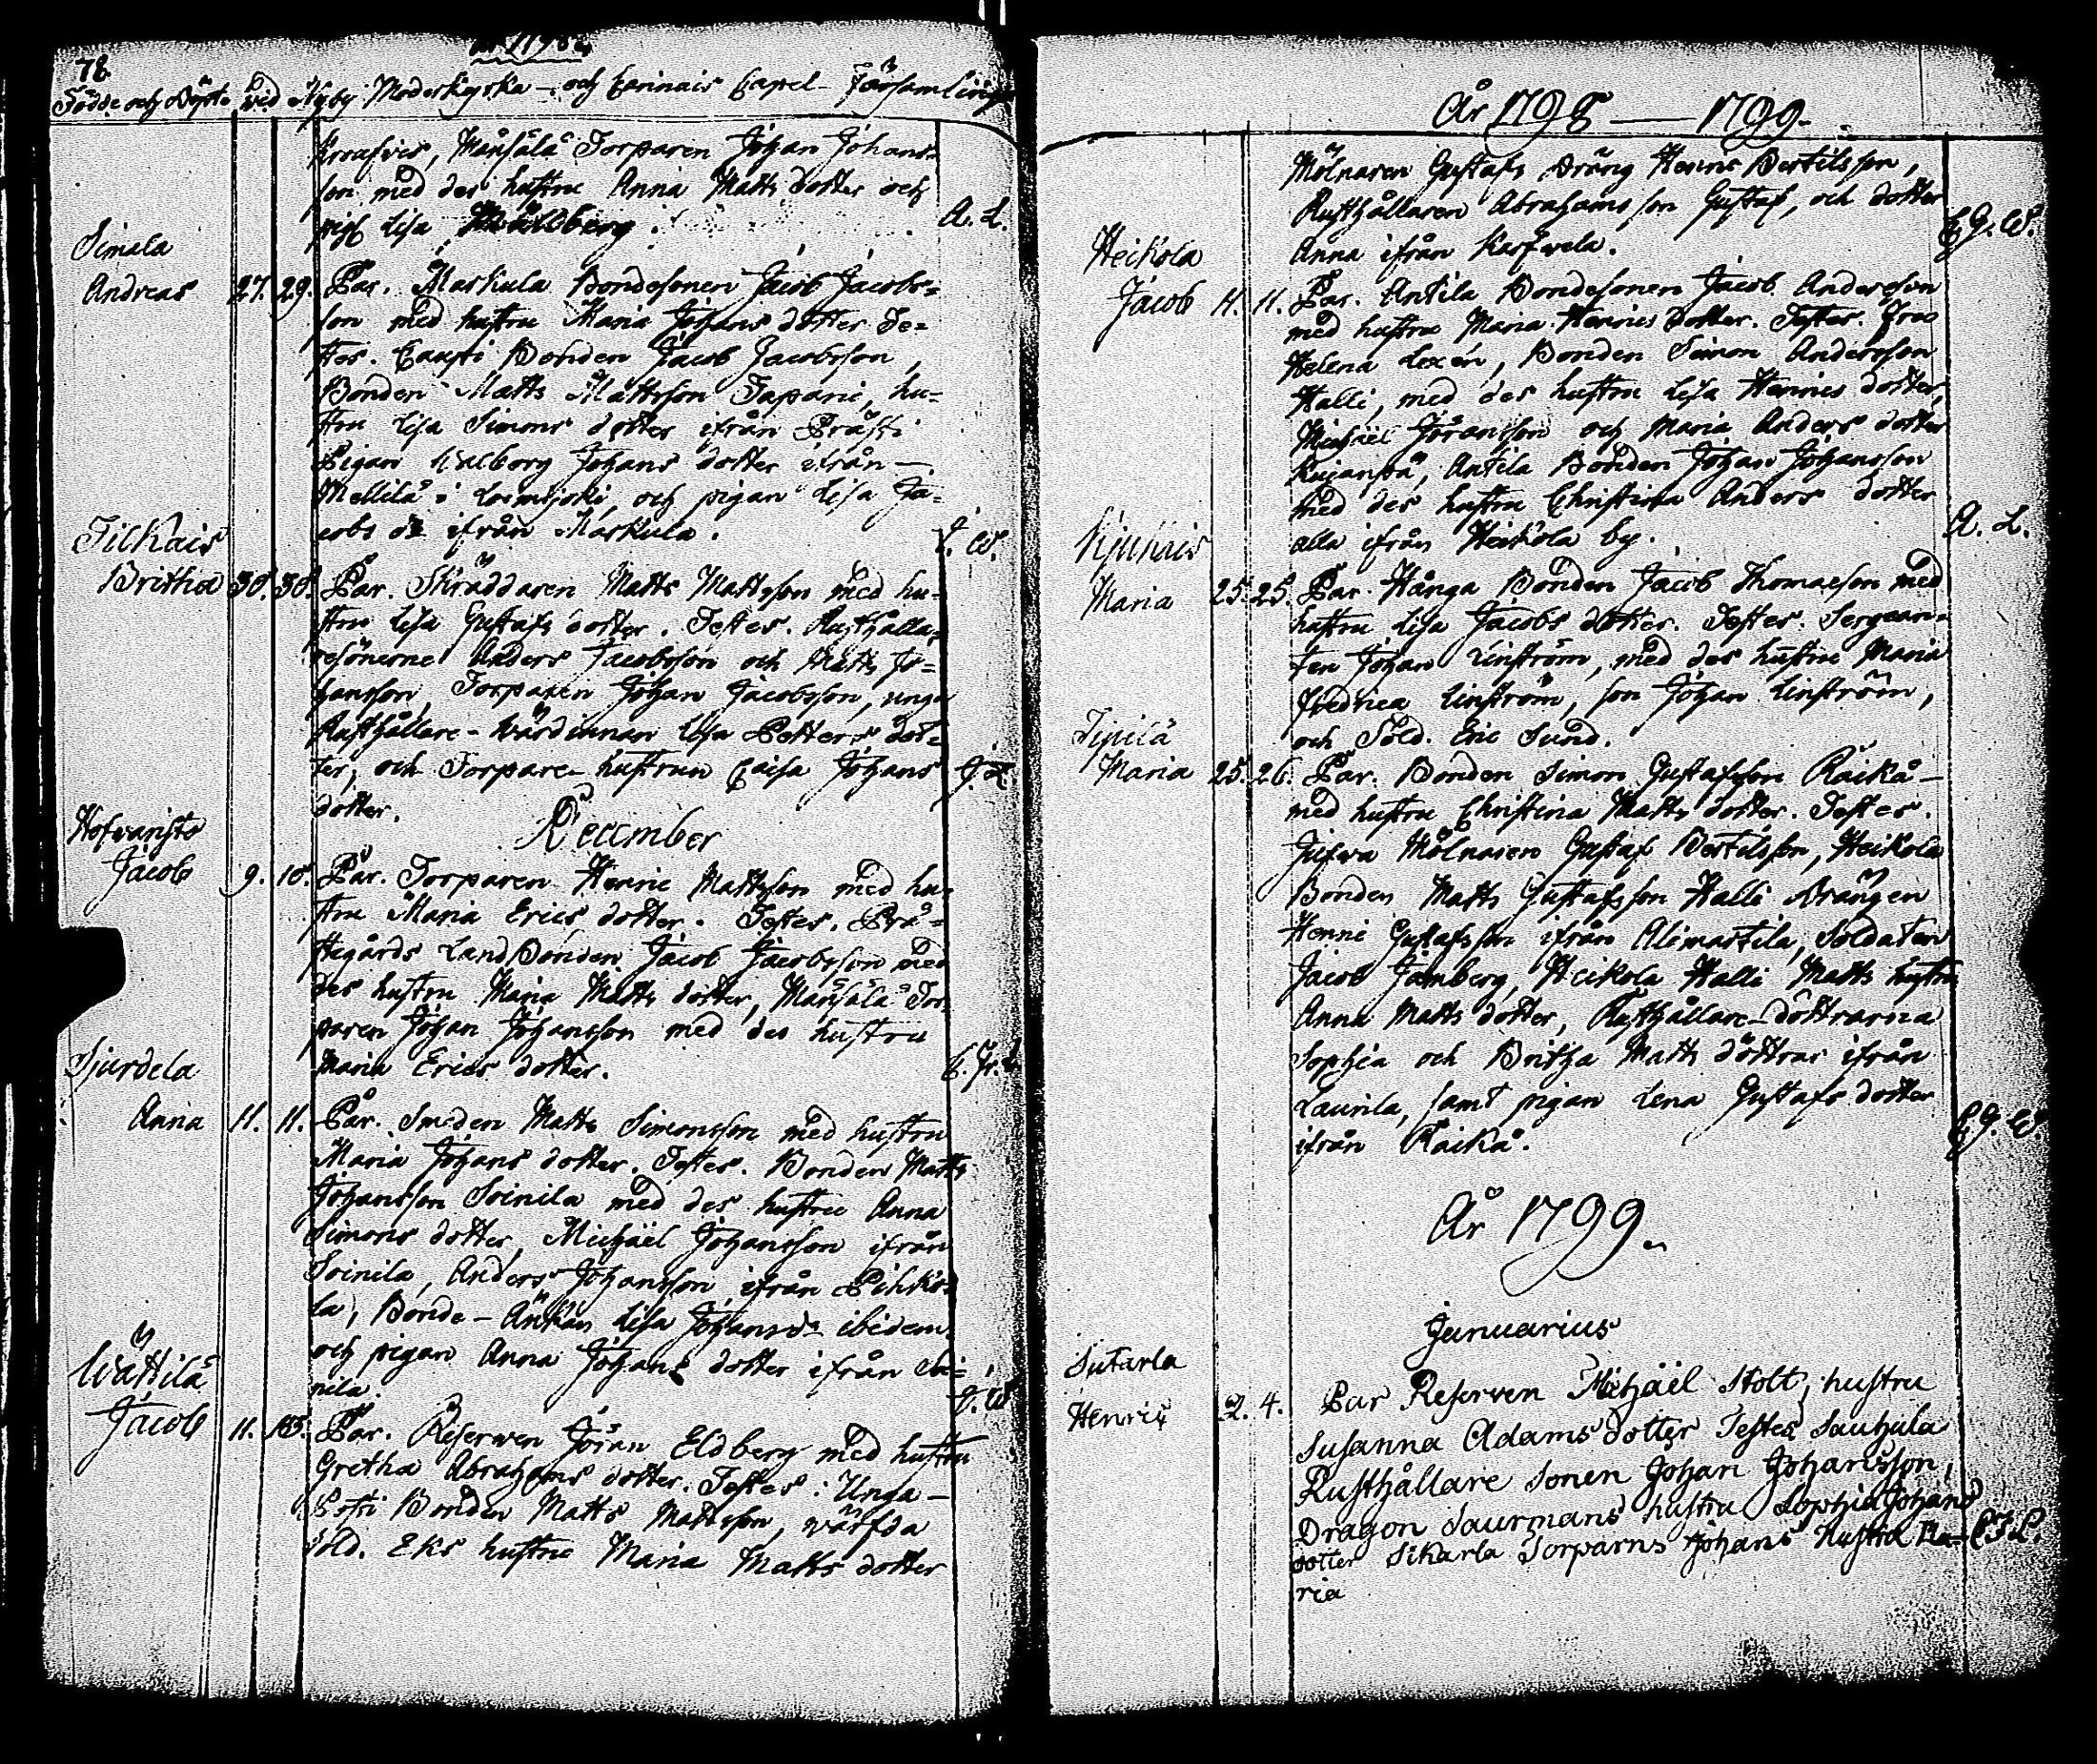 78.
Födde och Döpte wid Nyby Moderkyrka - och Carinais Capel - Församling
Mansälä Torparen Johan Johans=
son med des hustru Anna Matts dotter och
pig. Lisa Wåhlberg. A. L.
Simala
Andreas 27. 29. Par. Markula Bondesonen Jacob Jacobs=
son med hustru Maria Johans dotter. Te=
stes. Caupi Bonden Jacob Jacobsson,
Bonden Matts Mattsson Tapani, hu=
stru Lisa Simons dotter ifrån Prästi
Pigan Walborg Johans dotter ifrån -
Mellilä i Loimijoki, och pigan Lisa Ja=
cobs dr ifrån Markula. J. W.
Tilkais
Britha 30. 30. Par. Skräddaren Matts Mattsson med hu=
stru Lisa Gustafs dotter. Testes. Rusthålla=
resönerne Anders Jacobsson och Matts Jo=
hansson, Torparen Johan Jacobsson, unga
Rusthållare-wärdinnan Lisa Petters dot=
ter, och Torpare-hustrun Caisa Johans J. L.
dotter.
December
Hofwaristo
Jacob 9. 10. Par. Torparen Henric Mattsson med hu=
stru Maria Erics dotter. Testes. Prä=
stegårds LandBonden Jacob Jacobsson med
des hustru Maria Matts dotter, Mansälä Tor=
paren Johan Johansson med des hustru
Maria Erics dotter.
Sjurdela
Anna 11. 11. Par. Smeden Matts Simonsson med hustru
Maria Johans dotter. Testes. Bonden Matts
Johansson Soinila med des hustru Anna
Simons dotter, Michäel Johansson ifrån
Soinila, Anders Johansson ifrån Pihko=
la, Bonde-Änkan Lisa Johans d. ibidem
och pigan Anna Johans dotter ifrån Soi=
nila. J. W.
Wättilä
Jacob 11. 13. Par. Reserven Jöran Eldberg med hustru
Gretha Abrahams dotter. Testes: Unga -
Posti Bonden Matts Mattsson, wärfda
Sold. Eks hustru Maria Matts dotter
År 1798 — 1799.
Mölnaren Gustafs dräng Henric Bertilsson,
Rusthållaren Abrahams son Gustaf, och dotter
Anna ifrån Karfwela. E. G. W.
Heikola
Jacob 11. 11. Par. Antila Bondesonen Jacob Andersson
med hustru Maria Henrics dotter. Testes. Fru
Helena Lexen, Bonden Simon Andersson
Halli, med des hustru Lisa Henrics dotter,
Michäel Jöransson och Maria Anders dotter
Kujanpä, Antila Bonden Johan Johansson
med des hustru Christina Anders dotter
alla ifrån Heikola by. A. L.
Maria 25. 25. Par. Hånga Bonden Jacob Thomasson med
hustru Lisa Jacobs dotter. Testes. Sergean=
ten Johan Linström, med des hustru Maria
Fredrica Linström, son Johan Linström,
och Sold. Eric Sund.
Tipilä
Maria 25. 26. Par. Bonden Simon Gustafsson Raikå -
med hustru Christina Matts dotter. Testes.
Jufwa Mölnaren Gustaf Bertilsson, Heikola
Bonden Matts Gustafsson Halli Drängen
Henric Gustafsson ifrån Alimartila, Soldaten
Jacob Jamberg, Heikola Halli Matts hustru
Anna Matts dotter, Rusthållare-döttrarna
Sophia och Britha Matts döttrar ifrån
Laurila, samt pigan Lena Gustafs dotter
ifrån Raikå. E. G. W
År 1799.
Januarius
Sutarla
Henric 2. 4. Par Reserven Michäel Stolt, hustru
Susanna Adams dotter Testes Sauhula
Rusthållare Sonen Johan Johansson,
Dragon Saurmans hustru Sophia Johans
dotter Sikarla Torparns Johans Hustru Ma=
ria